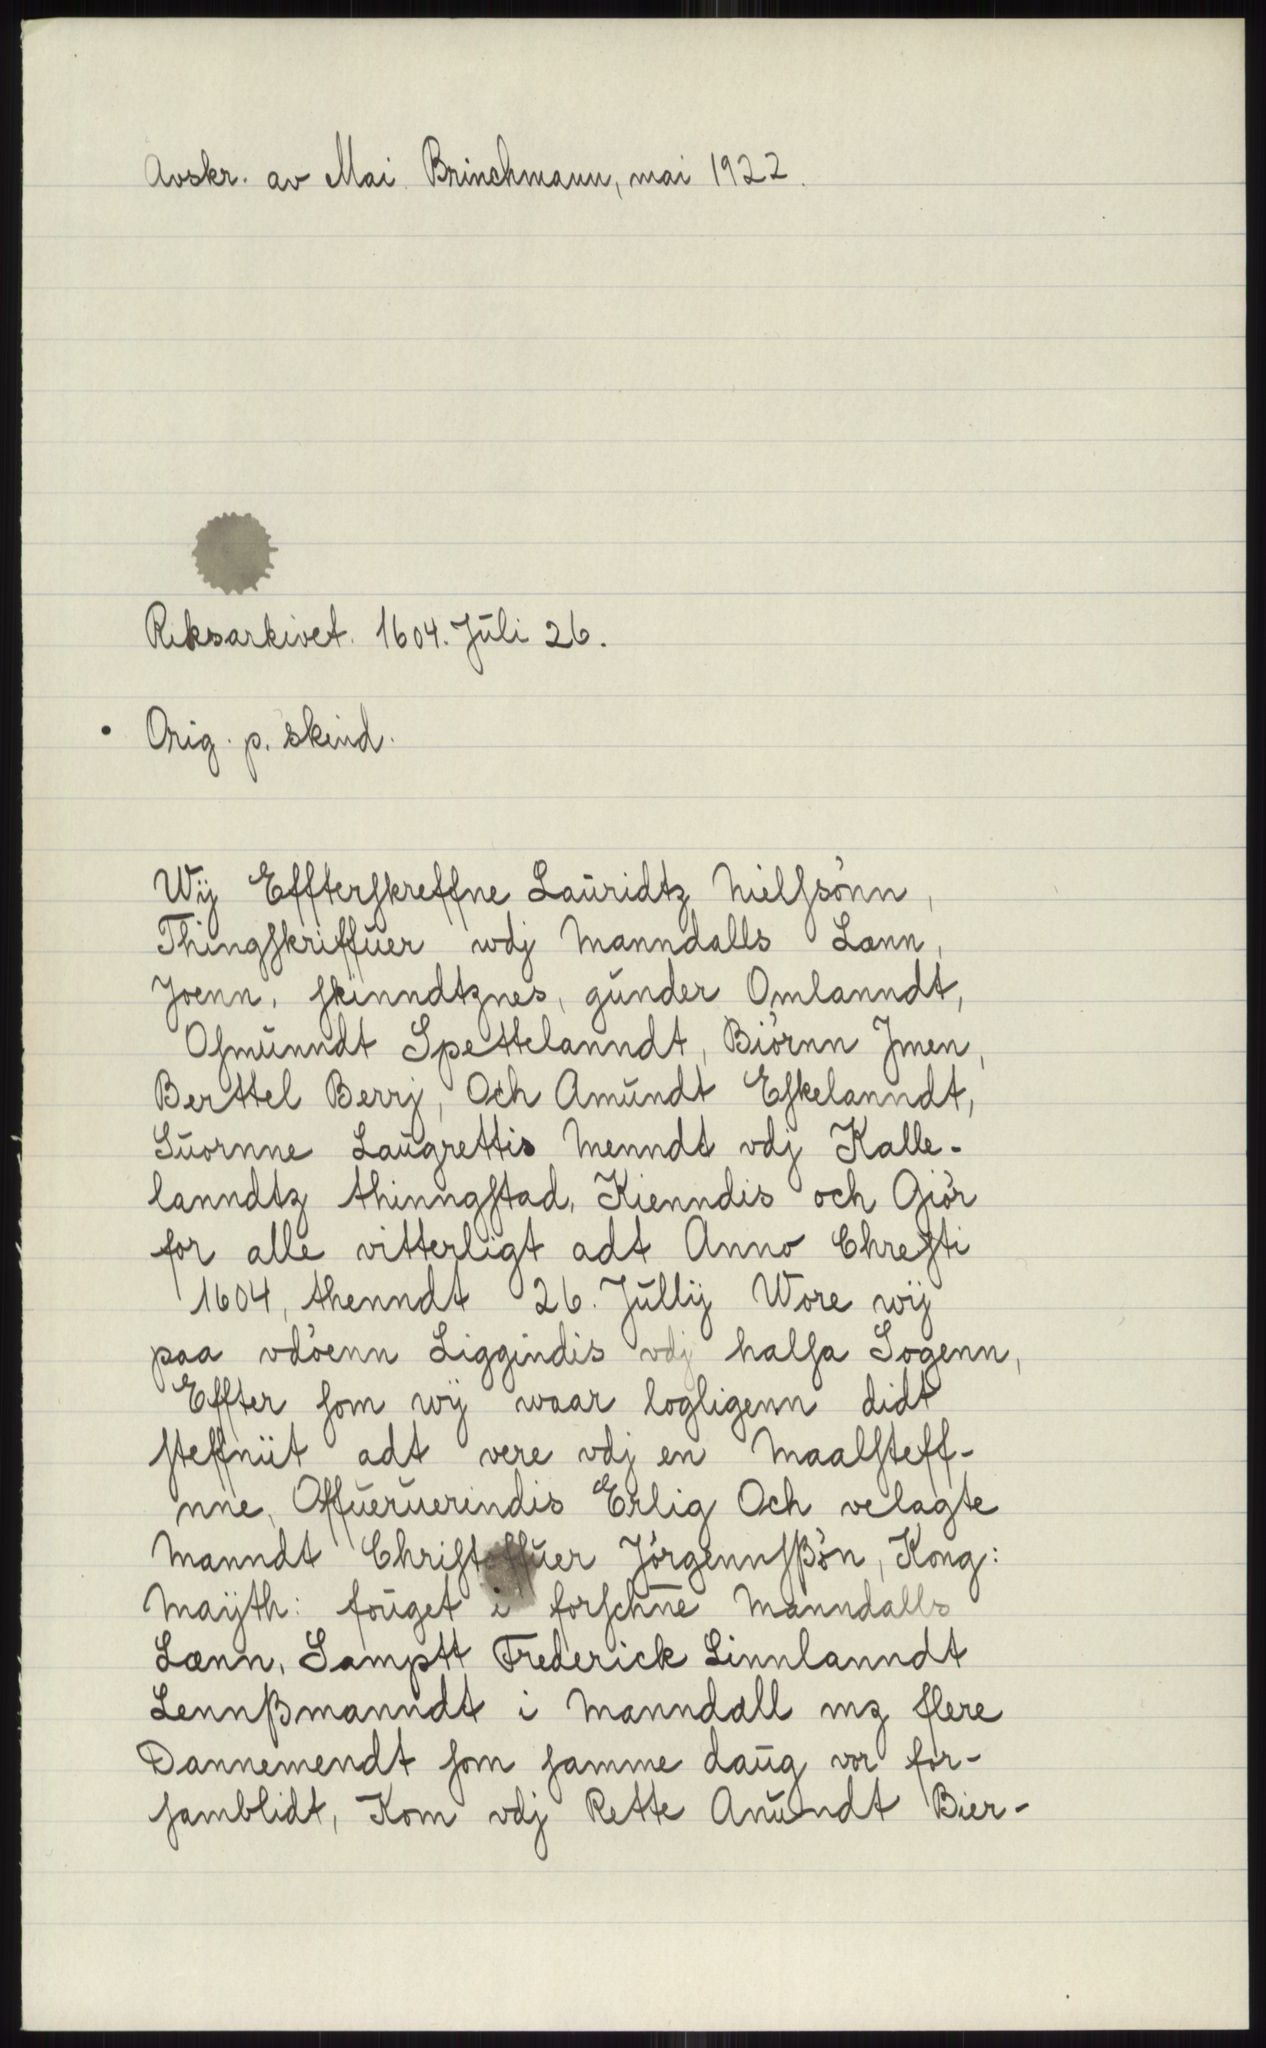 Avskr. av Mai Brinchmann, mai 1922.
Riksarkivet. 1604. Jŭli 26.
Orig. p. skind.
Wÿ Effterſkreffne Laŭridtz Nielſsönn,
Thingſkriffŭer wdj Manndalls Lænn,
Joenn, ſkinndtznes, gŭnder Omlanndt,
Oſmŭnndt Spettelanndt, Biörnn Jmen,
Berttel Berrj, Och Amŭndt Eſkelanndt,
Sŭornne Laŭgrettis Menndt vdj Kalle-
lanndtz thinngſtad, Kienndis och Giör
for alle vitterligt adt Anno Chreſti
1604, thenndt 26. Jŭllÿ Wore wÿ
paa vdöenn Liggindis vdj halſa Sogenn,
Effter ſom wÿ waar logligenn didt
ſteffnŭt adt vere vdj en Maalſteff-
nne, Offŭerŭerindis Erlig Och velagte
Manndt Chriſtoffŭer Jörgennſßön, Kong:
Maÿth: foŭget i forſchne Manndalls
Lænn, Samptt Frederick Linnlanndt
Lennßmanndt i Manndall mz flere
Dannemendt ſom ſamme daŭg vor for-
ſamblidt, Kom vdj Rette Anŭndt Bier-